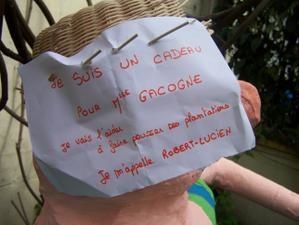 JE SUIS UN CADEAU
POUR Mlle GACOGNE
Je vais l'aider
à faire pousser des plantations
Je m'appelle ROBERT-LUCIEN